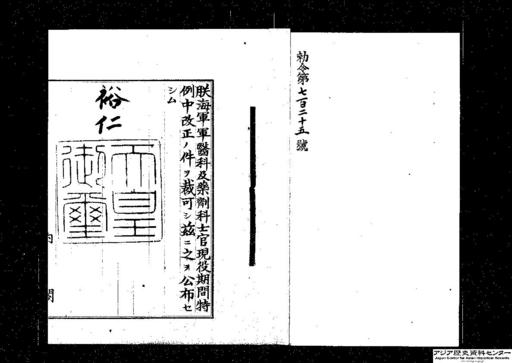 勅令第七百二十五號
朕海軍軍醫科及藥劑科士官現役期間特
例中改正ノ件ヲ裁可シ茲ニ之ヲ公布セ
シム
裕仁
天皇
御璽
内閣
アジア歴史資料センター
Japan Center for Asian Historical Records